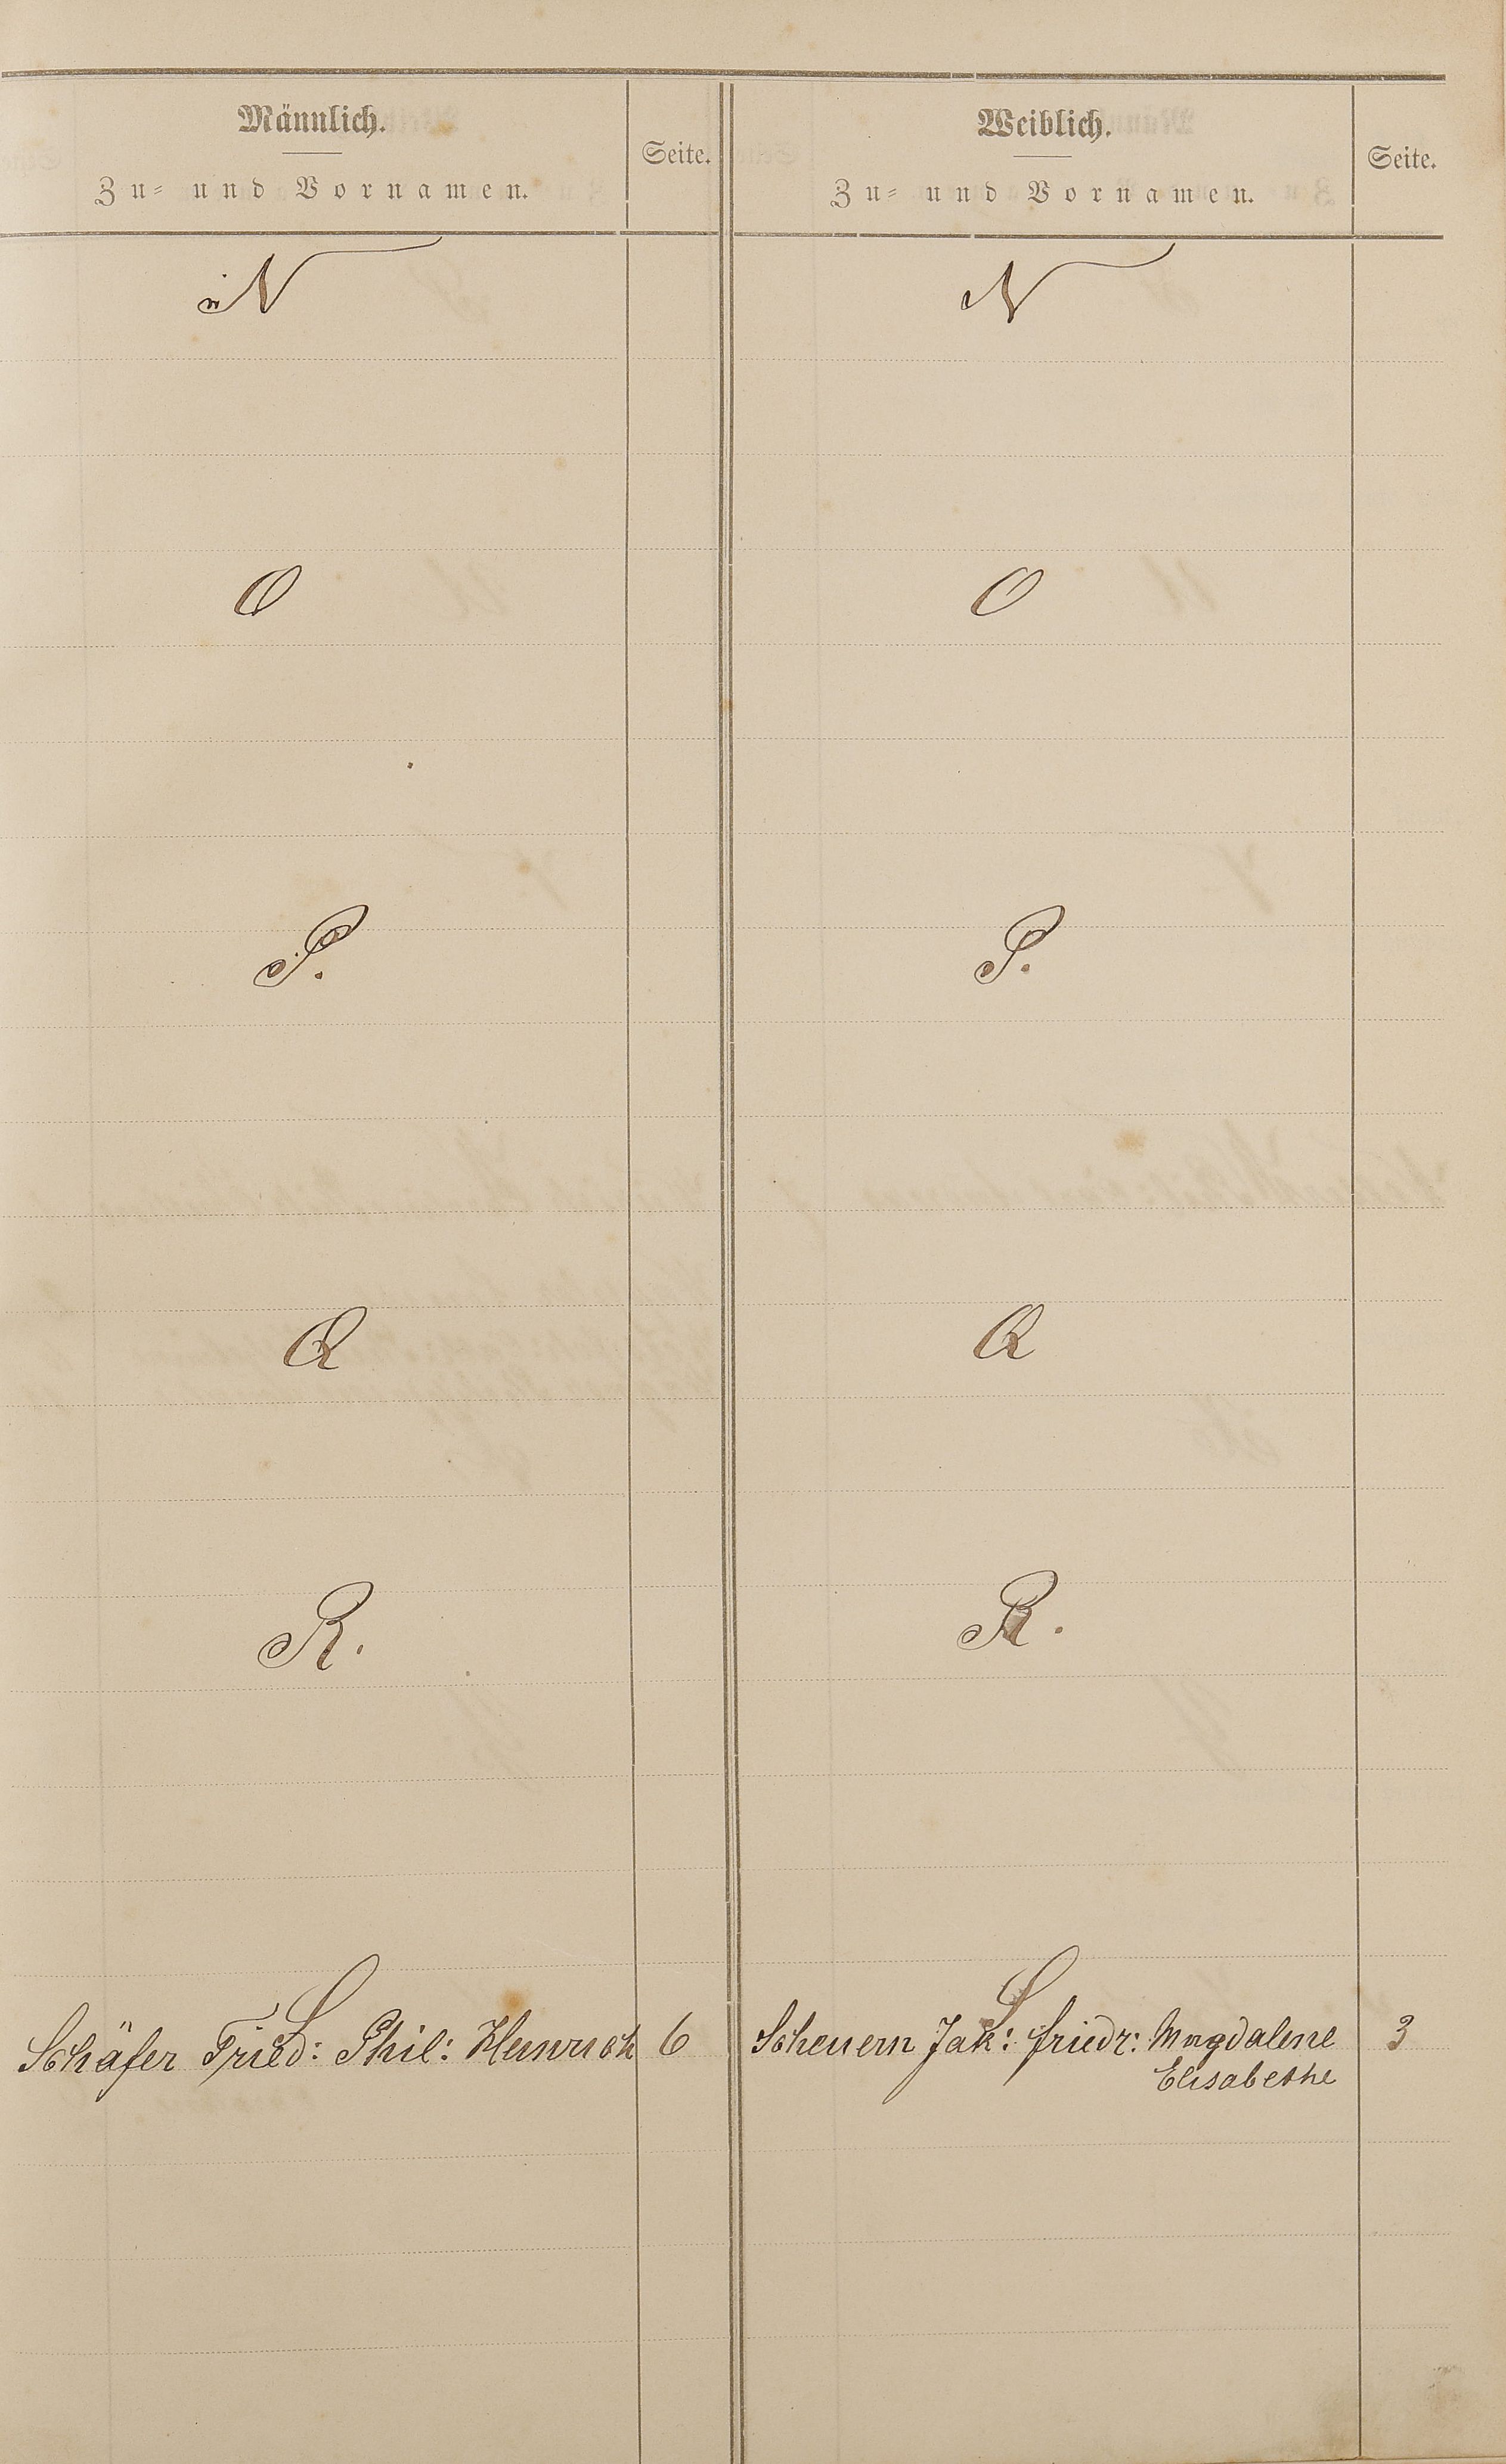 Männlich.
Zu- und Vornamen.
Seite.
Weiblich.
Zu- und Vornamen.
Seite.
N
N
O
O
P.
P.
Q
Q
R.
R.
S
S
Schäfer Fried: Phil: Heinrich 6
Scheuern Jak: Friedr: Magdalene 3
Elisabethe